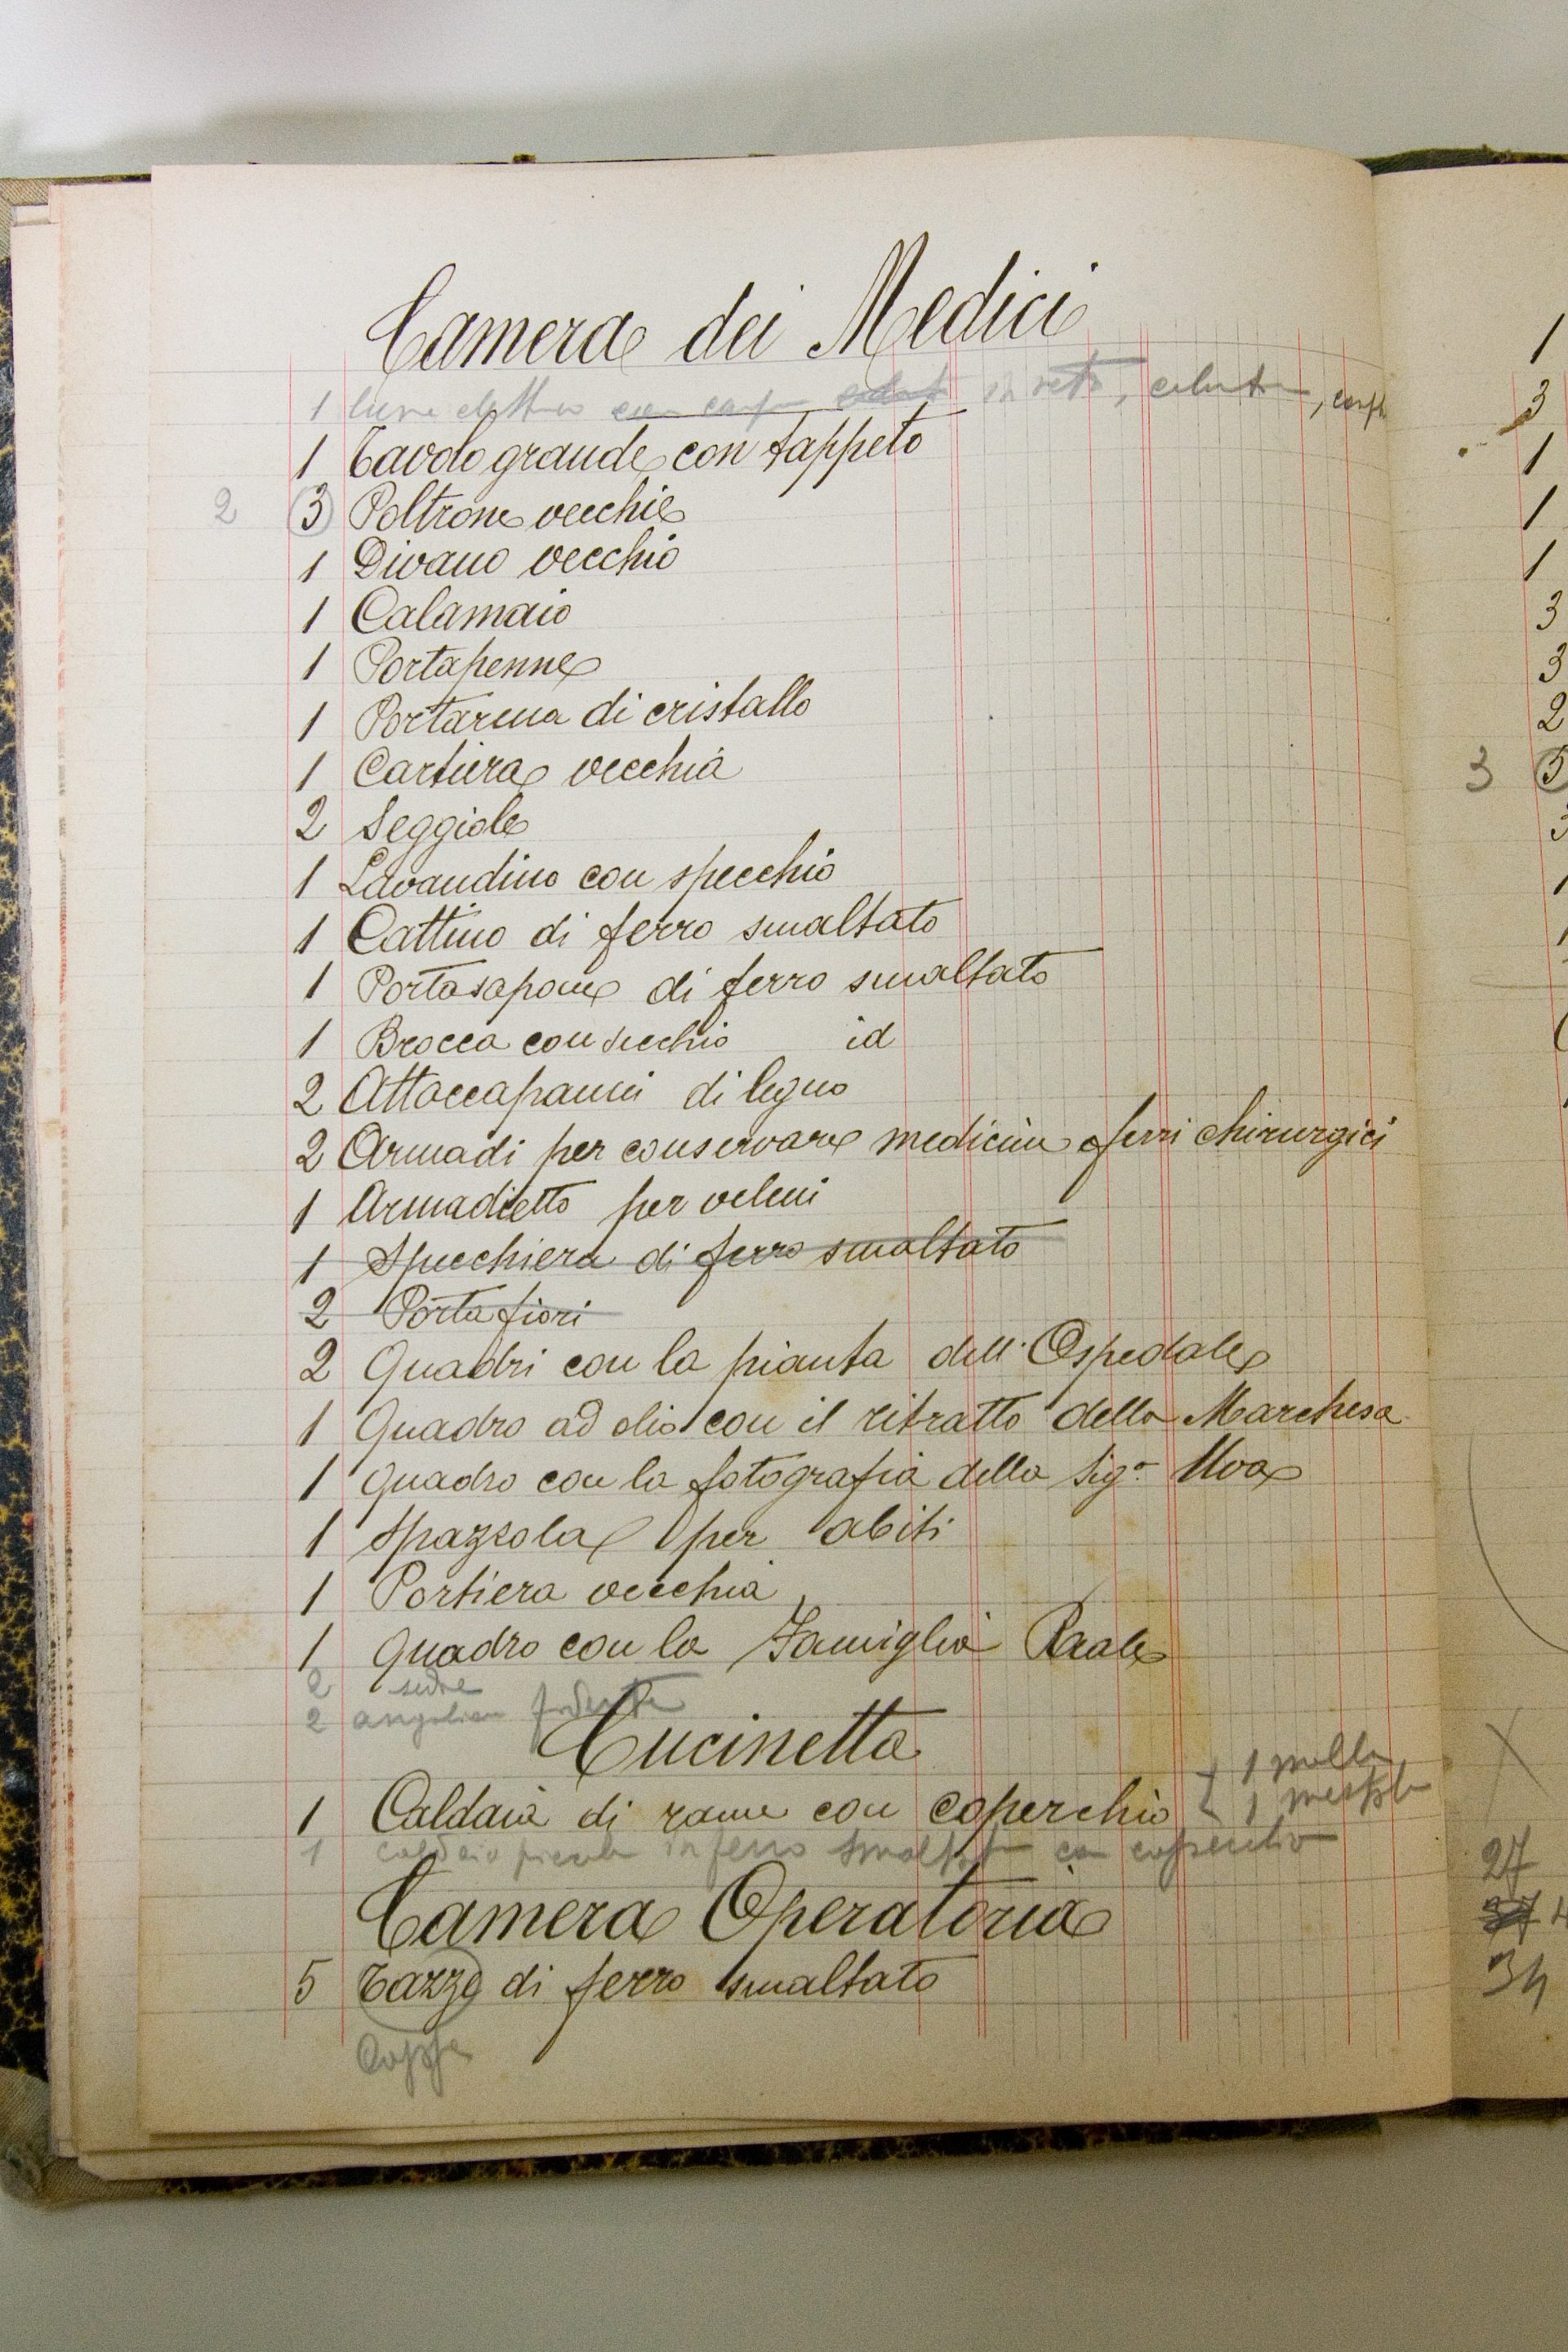 Camera dei Medici
1 luce elettrica con in vetro,
1 Tavolo grande con tappeto
2 3 Poltrone vecchie
1 Divano vecchio
1 Calamaio
1 Portapenne
1 Portarena di cristallo
1 Cartiera vecchia
2 Seggiole
1 Lavandino con specchio
1 Cattino di ferro smaltato
1 Portasapone di ferro smaltato
1 Brocca con secchio id
2 Attaccapanni di legno
2 Armadi per conservare medicine ferri chirurgici
1 Armadietto per veleni
1 Specchiera di ferro smaltato
2 Porta fiori
2 Quadri con la pianta dell'Ospedale
1 Quadro ad olio con il ritratto della Marchesa
1 Quadro con la fotografia della Sigª Uva
1 Spazzola per abiti
1 Portiera vecchia
1 Quadro con la Famiglia Reale
2 sedie
2
Cucinetta
1 Caldaia di rame con coperchio 1 molla
1 mestolo
1 caldaio piccolo in ferro smaltato con coperchio
Camera Operatoria
5 Tazze di ferro smaltato
Coppe
1
3
1
1
1
3
3
2
3 5
3
27
37
34